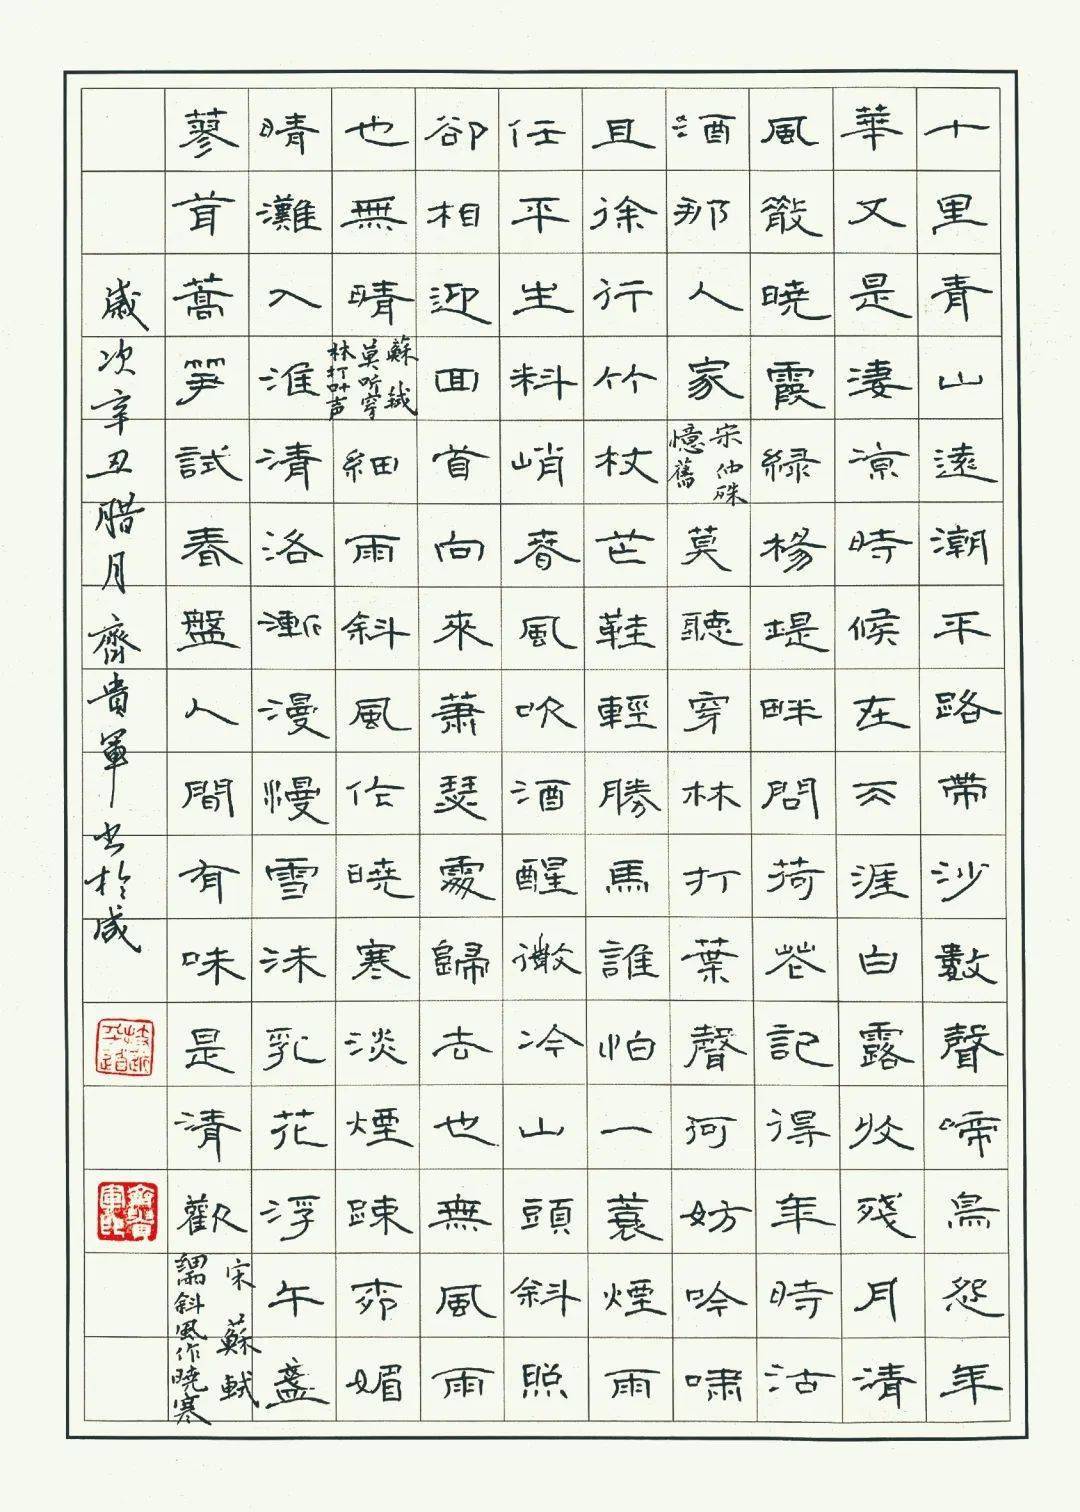 十里青山遠潮平路帶沙數聲啼鳥怨年
華又是淒涼時候在天涯白露收殘月清
風散曉霞緑楊堤畔問荷花記得年時沽
酒那人家
宋仲殊
憶舊
莫聽穿林打葉聲何妨吟嘯
且徐行竹杖芒鞋輕勝馬誰怕一蓑煙雨
任平生料峭春風吹酒醒微冷山頭斜照
卻相迎回首向來蕭瑟處歸去也無風雨
也無晴
蘇軾
莫听穿
林打叶声
細雨斜風作曉寒淡煙疎柳媚
晴灘入淮清洛漸漫漫雪沫乳花浮午盞
蓼茸蒿筍試春盤人間有味是清歡
宋蘇軾
斜風作晓寒
歲次辛丑腊月齊貴軍书於咸
齊貴軍印